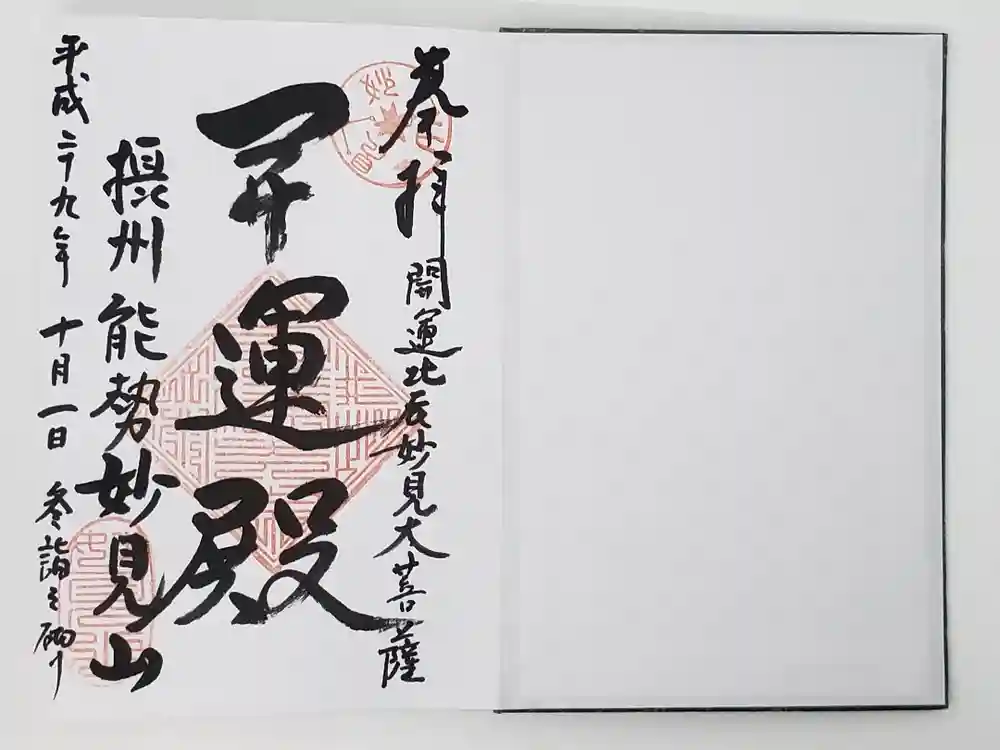 奉拝
開運北辰妙見大菩薩
开運殿
摂州能勢妙見山
平成二十九年十月一日 参詣之砌